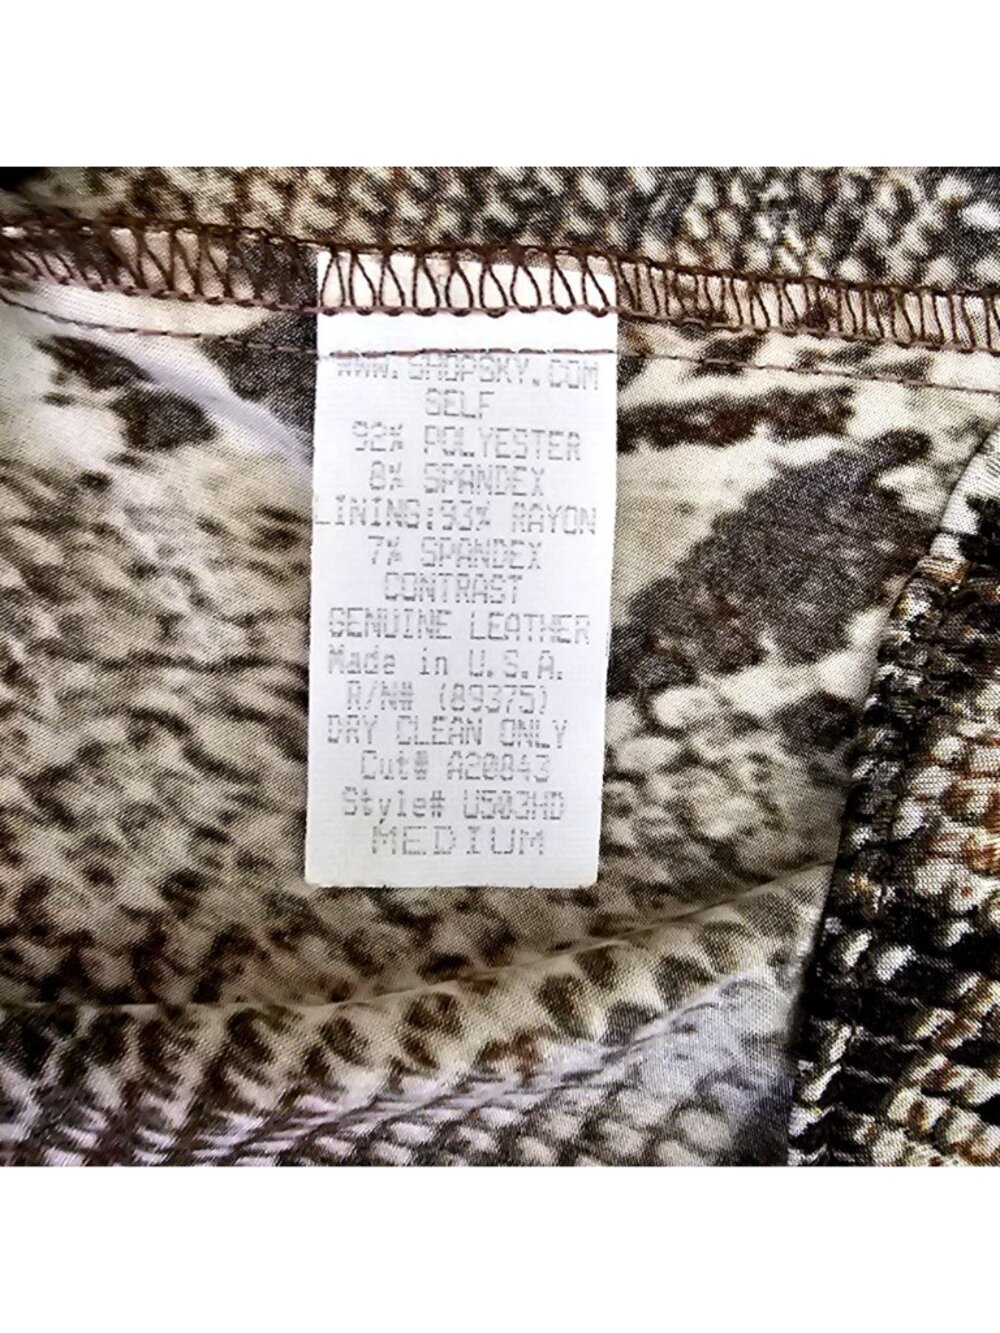 WWW.SHOPSKY.COM
SELF
92% POLYESTER
8% SPANDEX
LINING:93% RAYON
7% SPANDEX
CONTRAST
GENUINE LEATHER
Made in U.S.A.
R/N# (89375)
DRY CLEAN ONLY
Cut# A20843
Style# U503HD
MEDIUM